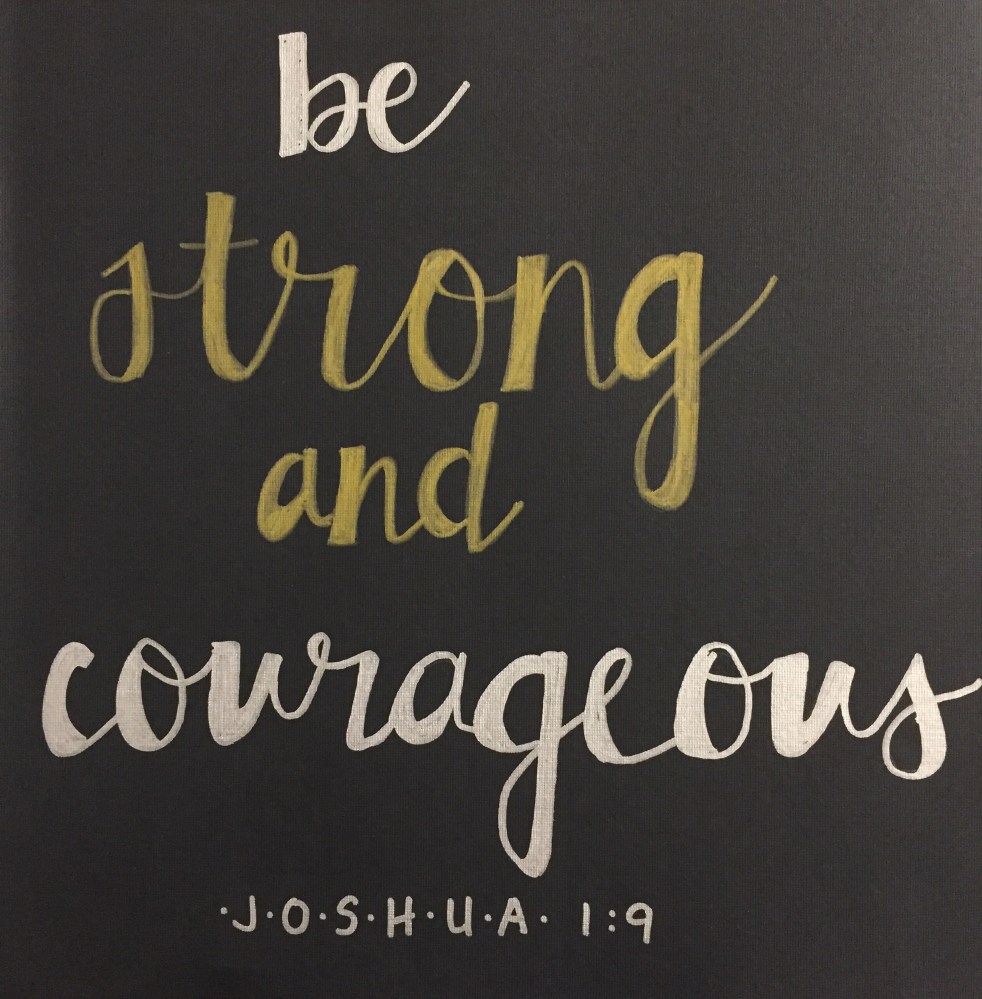 be
strong
and
courageous
·J·O·S·H·U·A· 1:9